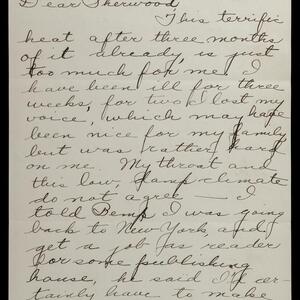 Dear Sherwood,
This terrific
heat after three months
of it already, is just
too much for me. I
have been ill for three
weeks, for two I lost my
voice, which may have
been nice for my family,
but was rather hard
on me. My throat and
this low, damp climate
do not agree — I
told Demp I was going
back to New York, and
get a job as reader
for some publishing
house, he said I'd cer-
tainly have to make